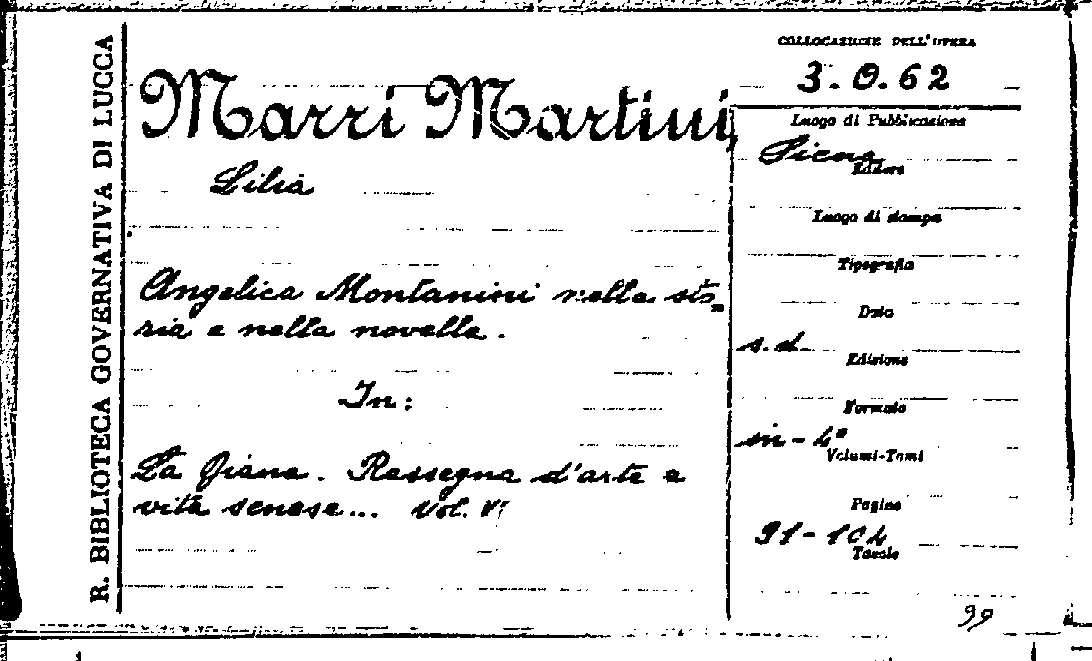 R. BIBLIOTECA GOVERNATIVA DI LUCCA
Marri Martini,
Lilia
Angelica Montanini nella sto=
ria e nella novella.
In:
La Diana. Rassegna d'arte e
vita senese... Vol. VI
COLLOCAZIONE DELL'OPERA
3.O.62
Luogo di Pubblicazione
Siena
Editore
Luogo di stampa
Tipografia
Data
s.d.
Edizione
Formato
in-4°
Volumi-Tomi
Pagine
91-104
Tavole
99